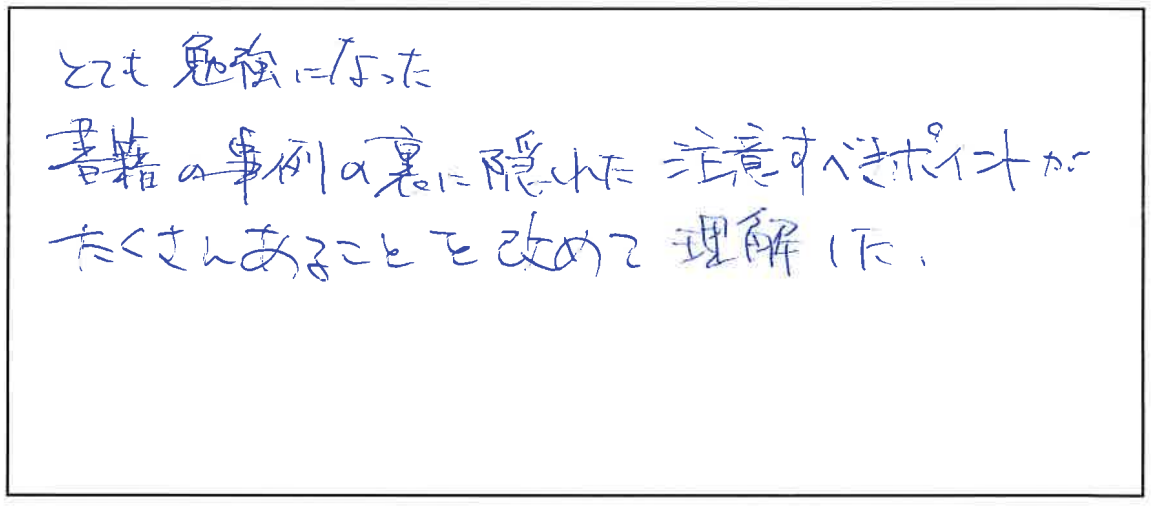 とても勉強になった
書籍の事例の裏に隠れた注意すべきポイントが
たくさんあることを改めて理解した.